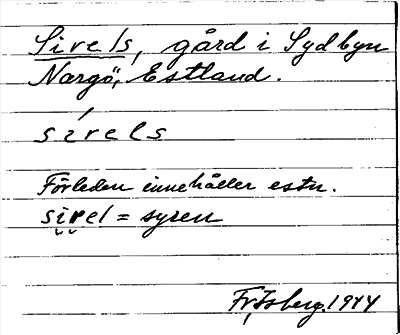 Sirels, gård i Sydbyn
Nargö, Estland.
sírels
Förleden innehåller estn.
sirel = syren
Fr. Isberg. 1944